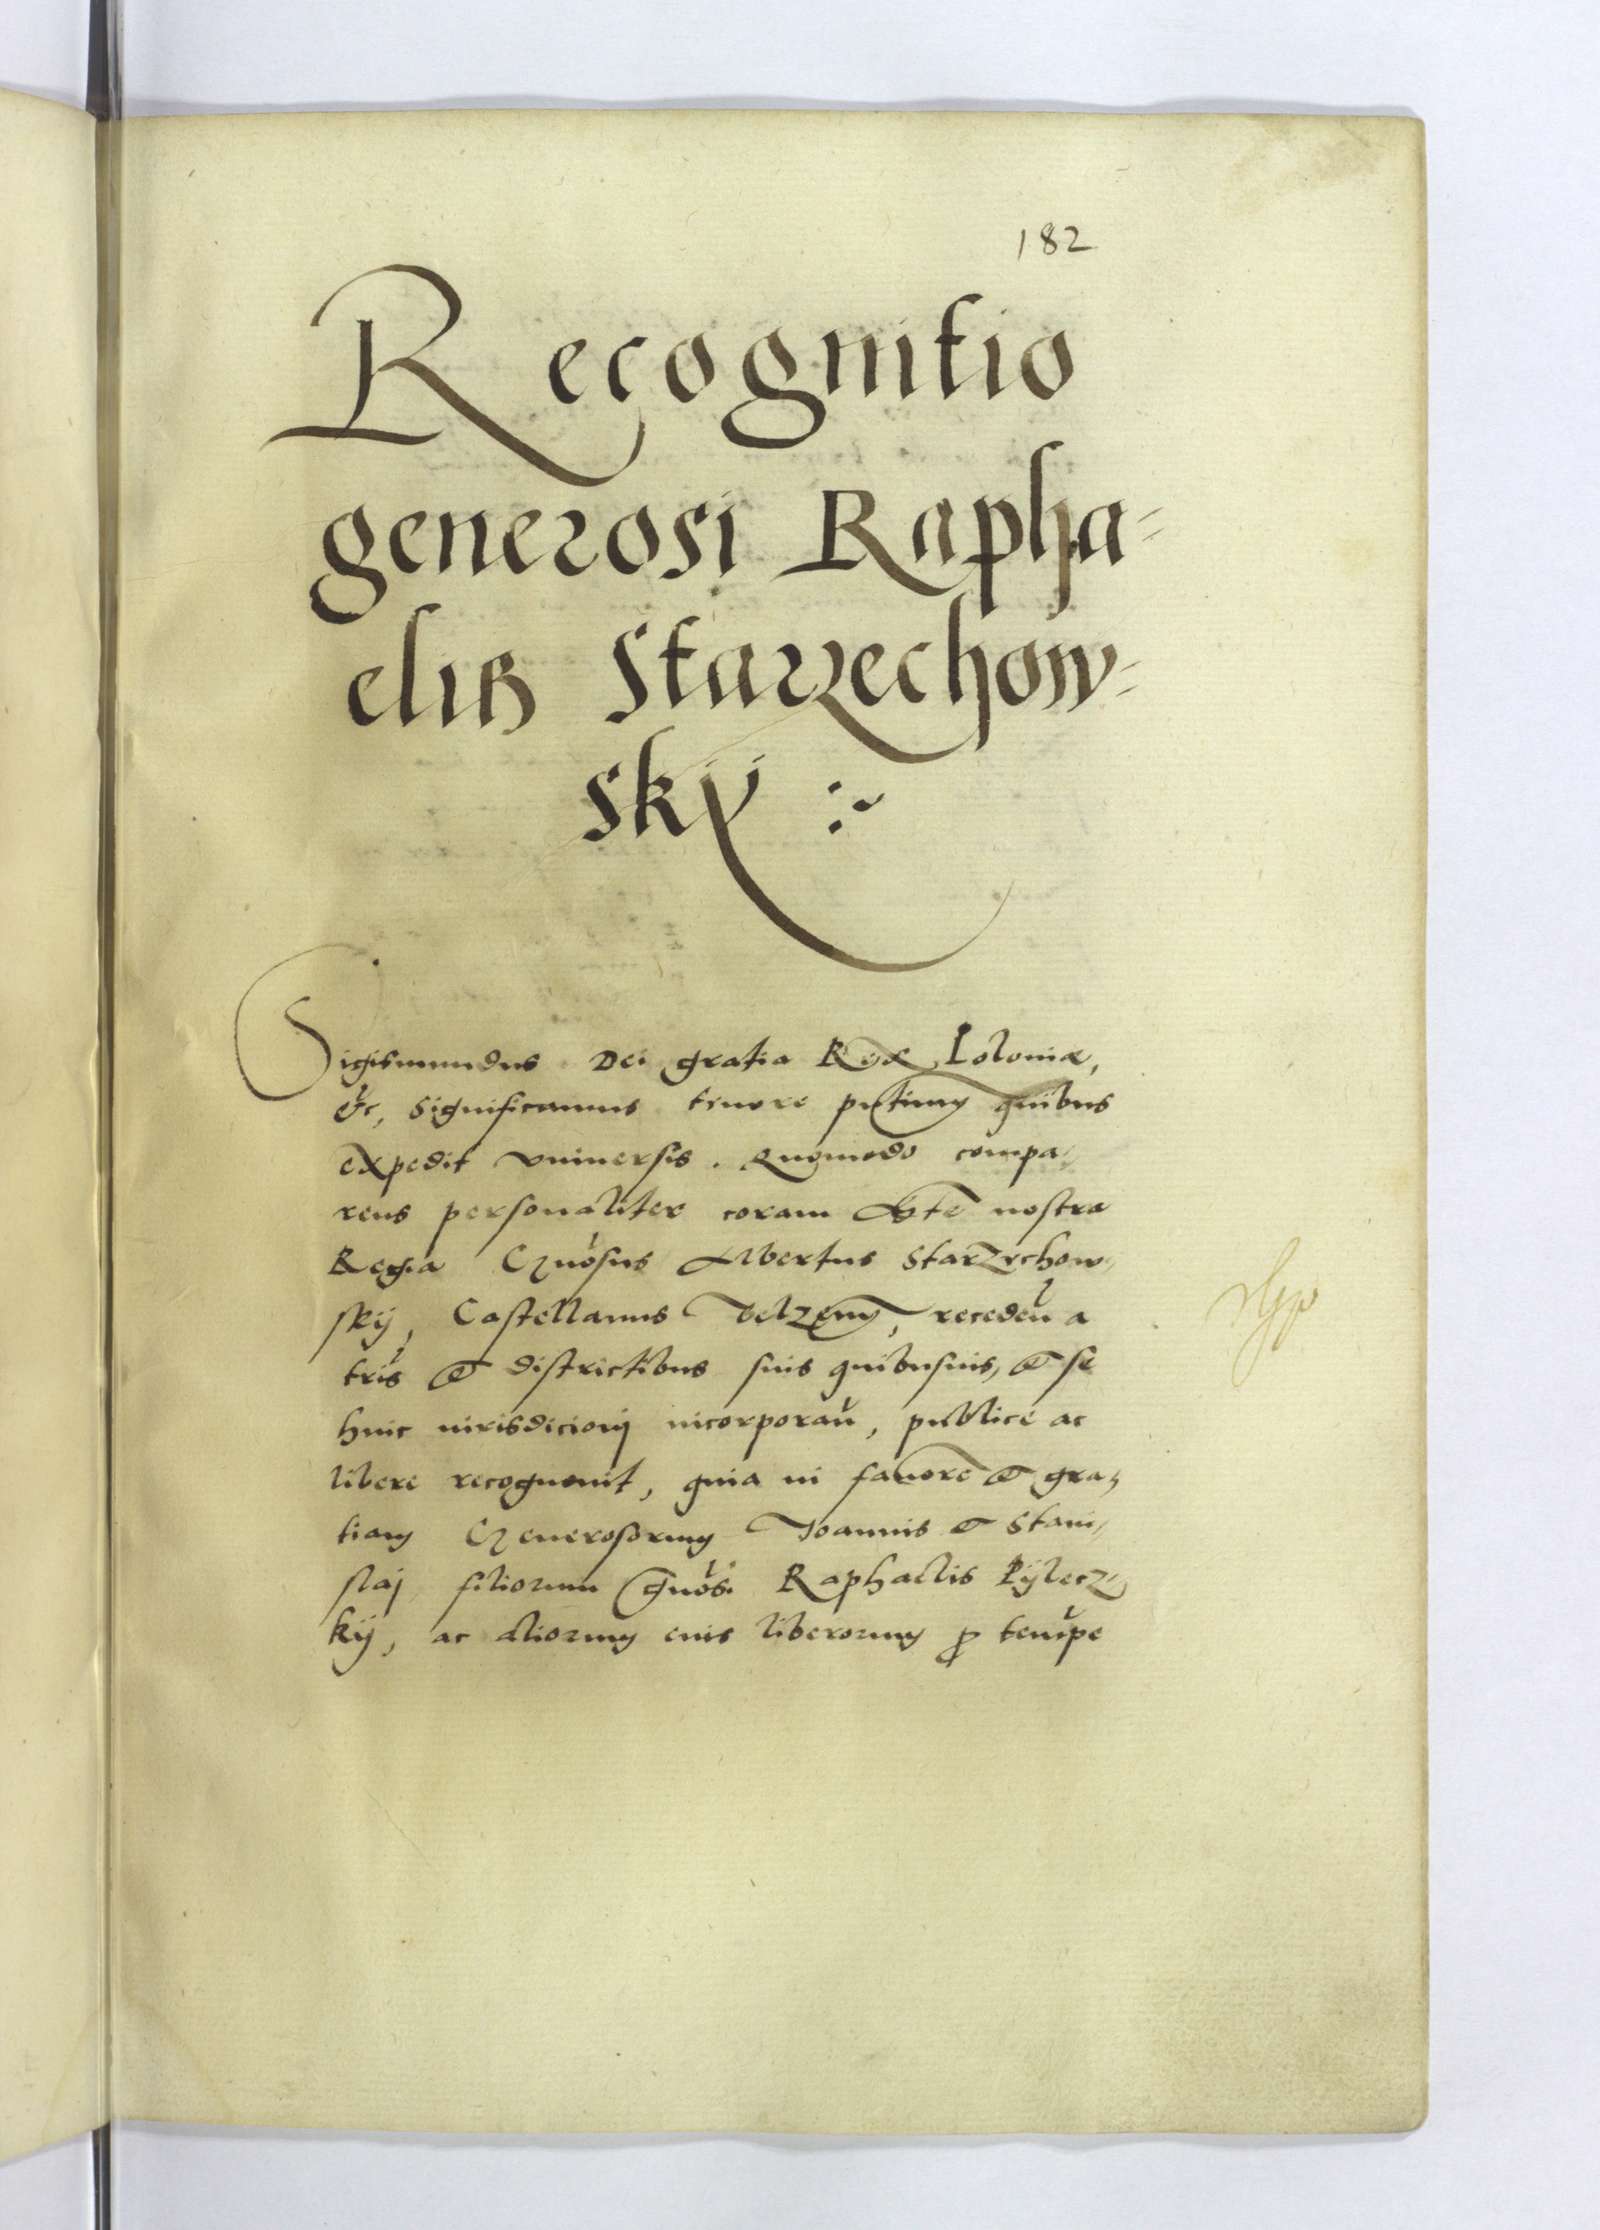 182
Recognitio
generosi Rapha-
elis Starzechow-
sky
Sigismundus Dei gratia Rex Poloniæ,
&c, Significamus tenore pñtium quibus
expedit vniuersis. Quomodo compa-
rens personaliter coram Mte nostra
Regia Gñosus Albertus Starzechow-
skij, Castellanus Belzeñ, recedeñ a
tris et districtibus suis quibusuis, et se
huic iurisdicionj incorporañ, publice ac
libere recognouit, quia in fauorẽ et gra-
tiam Generosorum Joannis et Stani-
slaj filiorum Gños. Raphaelis Pÿlecz-
kij, ac aliorum eius liberorum ꝑ tempe